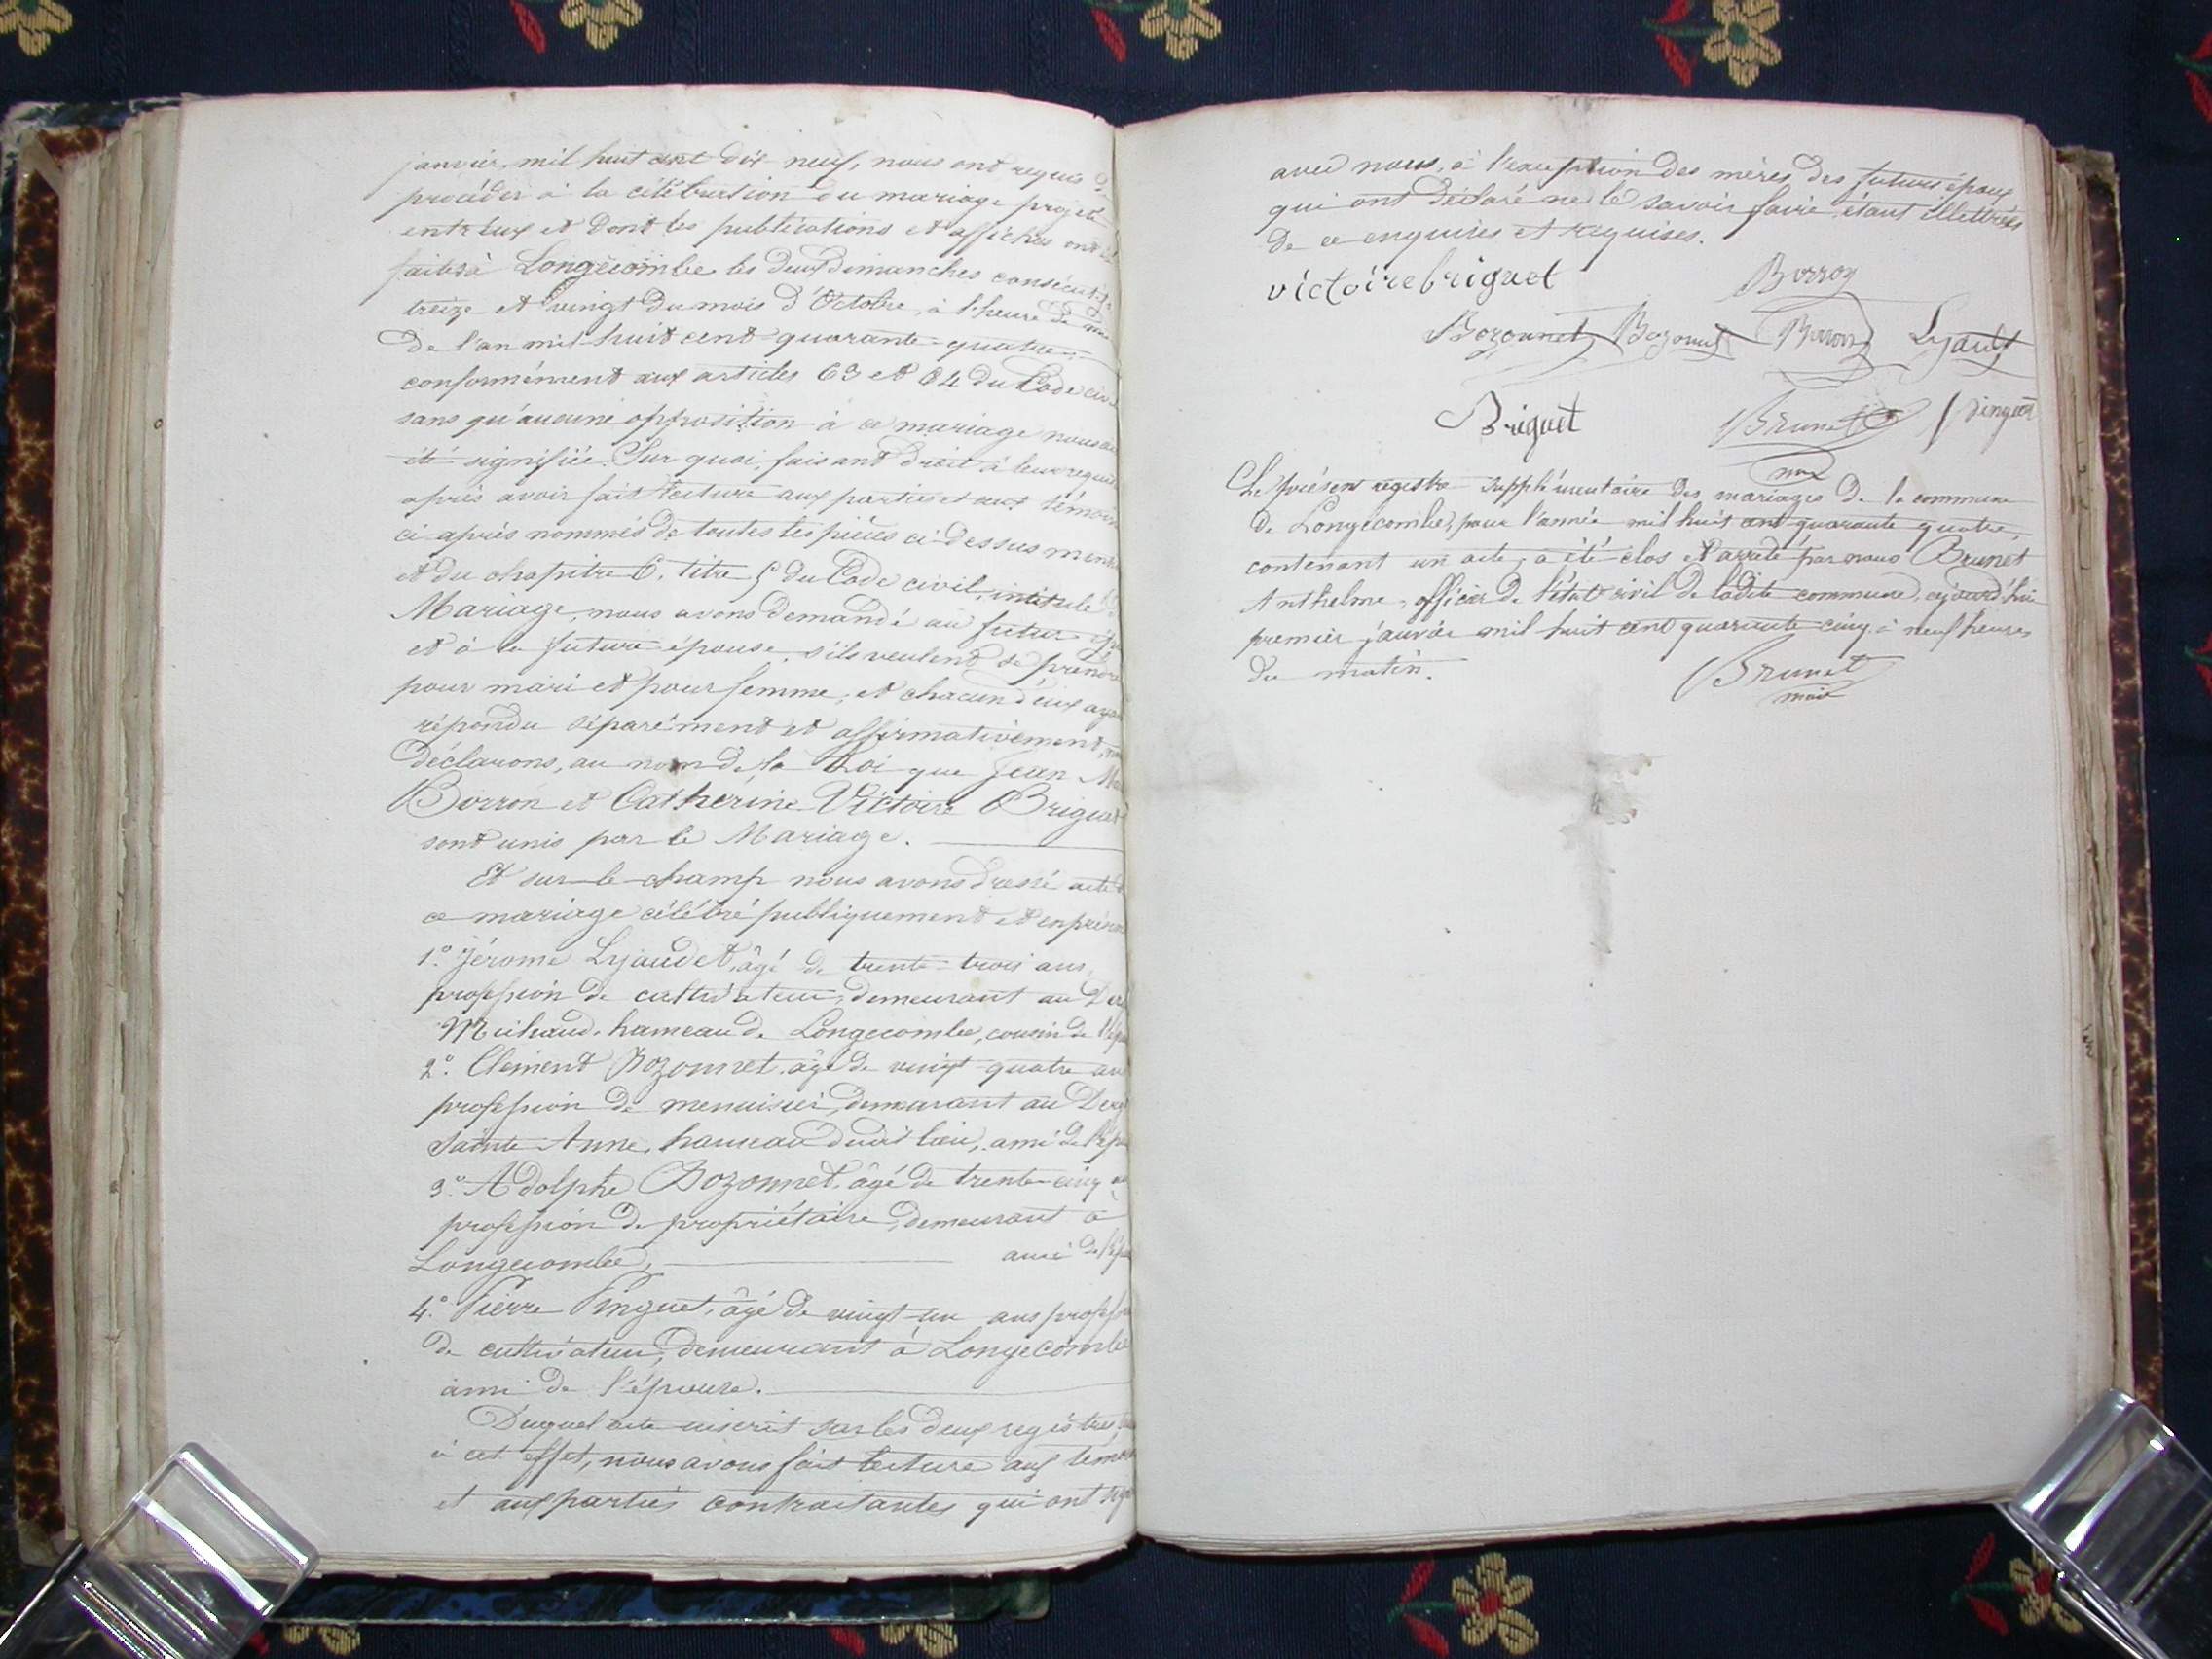 janvier, mil huit cent dix neuf, nous ont requis de
procéder à la célébration du mariage projeté
entr'eux et dont les publications et affiches ont été
faites à Longecombe les deux dimanches consécutifs
treize et vingt du mois d'Octobre, à l'heure de midi
de l'an mil huit cent quarante quatre
conformément aux articles 63 et 64 du Code civil
sans qu'aucune opposition à ce mariage nous ait
été signifiée. Sur quoi, faisant droit à leur requis
après avoir fait lecture aux parties et aux témoins
ci après nommés de toutes les pièces ci-dessus ment
et du chapitre 6, titre 5 du Code civil, intitulé
Mariage, nous avons demandé au futur époux
et à la future épouse, s'ils veulent se prendre
pour mari et pour femme, et chacun d'eux ayant
répondu séparément et affirmativement, nous
déclarons, au nom de la Loi que Jean Ma
Borron et Catherine Victoire Briguet
sont unis par le Mariage.
Et sur-le-champ nous avons dressé acte de
ce mariage célébré publiquement et en présence
1.° Jérome Lyaudet, âgé de trente-trois ans,
profession de cultivateur, demeurant au Der
Michaud, hameau de Longecombe, cousin de l'ép
2.° Clément Bozonnet, âgé de vingt-quatre ans
profession de menuisier, demeurant au Der
Sainte-Anne, hameau dudit lieu, ami de l'ép
3.° Adolphe Bozonnet, âgé de trente-cinq ans
profession de propriétaire, demeurant à
Longecombe, ami de l'ép
4.° Pierre Pinguet, âgé de vingt-un ans profession
de cultivateur, demeurant à Longecombe
ami de l'épouse.
Duquel acte inscrit sur les deux registres
à cet effet, nous avons fait lecture aux témoins
et aux parties contractantes qui ont signé
avec nous, à l'exception des mères des futurs époux
qui ont déclaré ne le savoir faire, étant illettrées
de ce enquises et requises.
victoire briguet Borron
Bozonnet Bozonnet Borron Lyaudet
Briguet Brunet Pinguet
Le présent registre supplémentaire des mariages de la commune
de Longecombe, pour l'année mil huit cent quarante quatre,
contenant un acte, a été clos et arrêté par nous Brunet
Anthelme, officier de l'état civil de ladite commune, aujourd'hui
premier janvier mil huit cent quarante cinq à neuf heures
du matin.
Brunet
maire